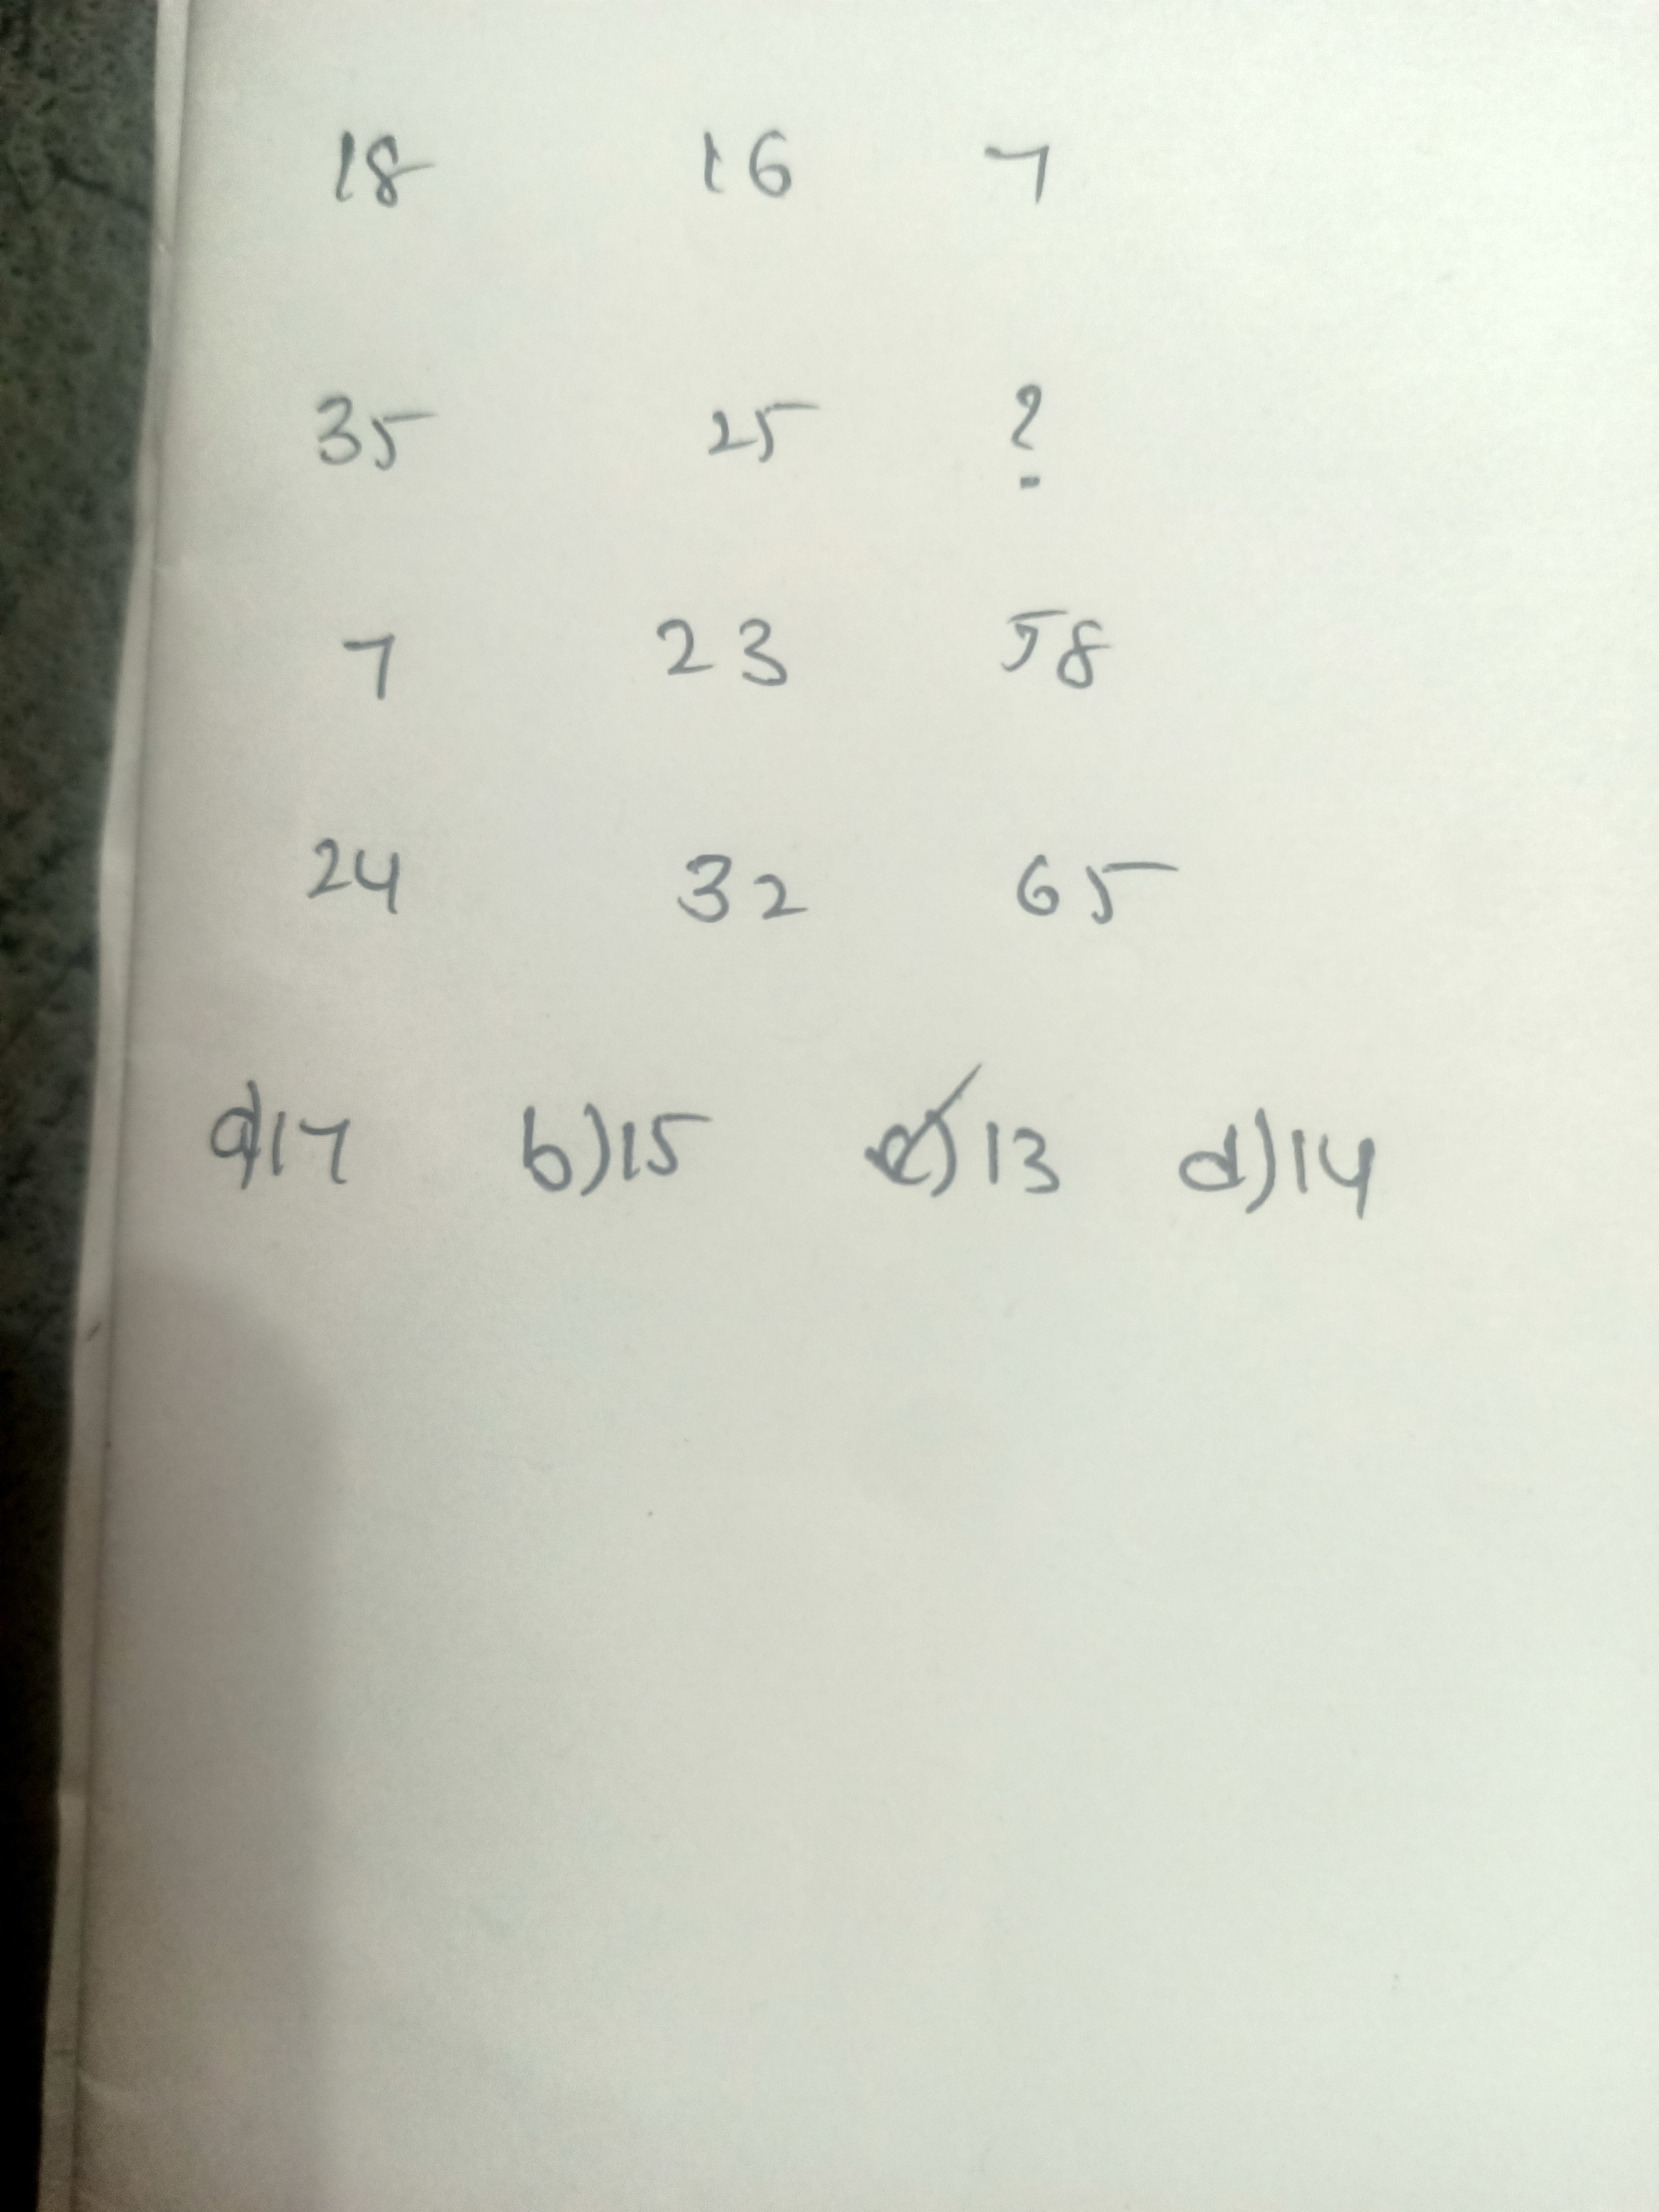 18 16 7
35 25 ?
7 23 58
24 32 65
a)17 b)15 c)13 d)14